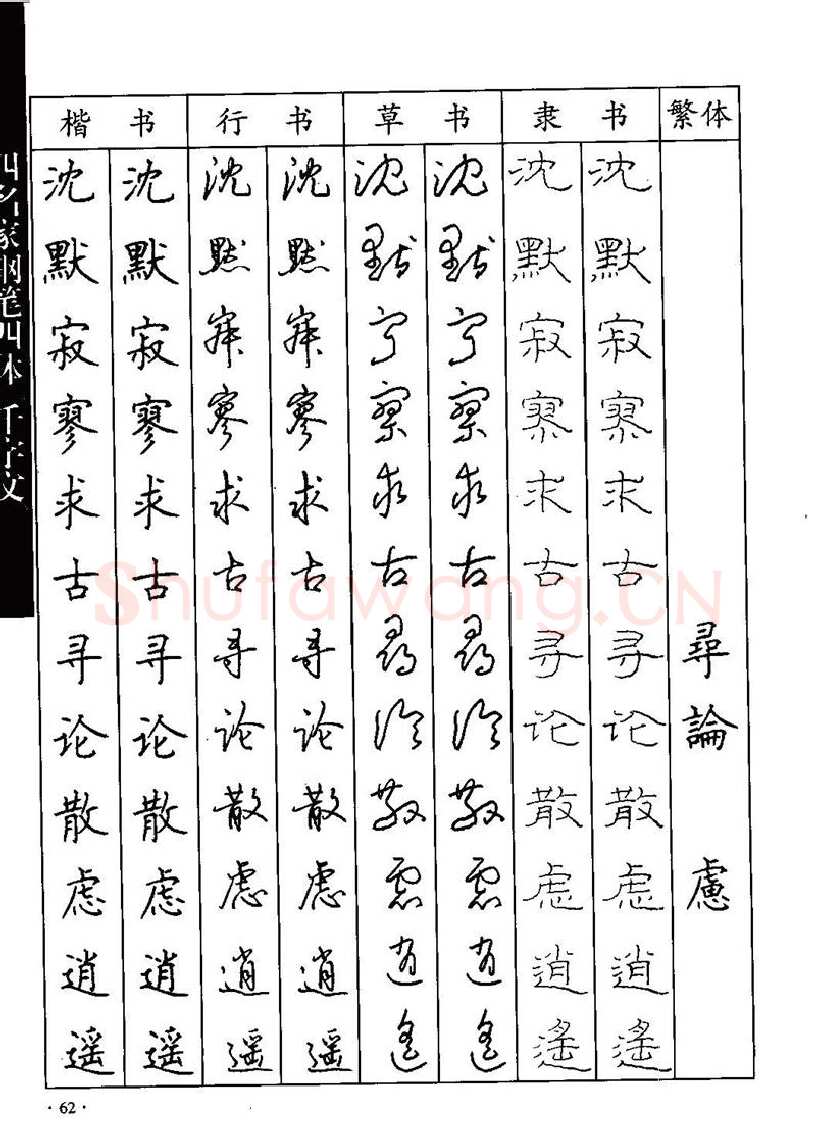 楷书 行书 草书 隶书 繁体
沈 沈 沈 沈 沈 沈 沈 沈
默 默 默 默 默 默 默 默
寂 寂 寂 寂 寂 寂 寂 寂
寥 寥 寥 寥 寥 寥 寥 寥
求 求 求 求 求 求 求 求
古 古 古 古 古 古 古 古
寻 寻 寻 寻 寻 寻 寻 寻 尋
论 论 论 论 论 论 论 论 論
散 散 散 散 散 散 散 散
虑 虑 虑 虑 虑 虑 虑 虑 慮
逍 逍 逍 逍 逍 逍 逍 逍
遥 遥 遥 遥 遥 遥 遥 遥
四名家钢笔四体千字文
Shufawang.CN
·62·